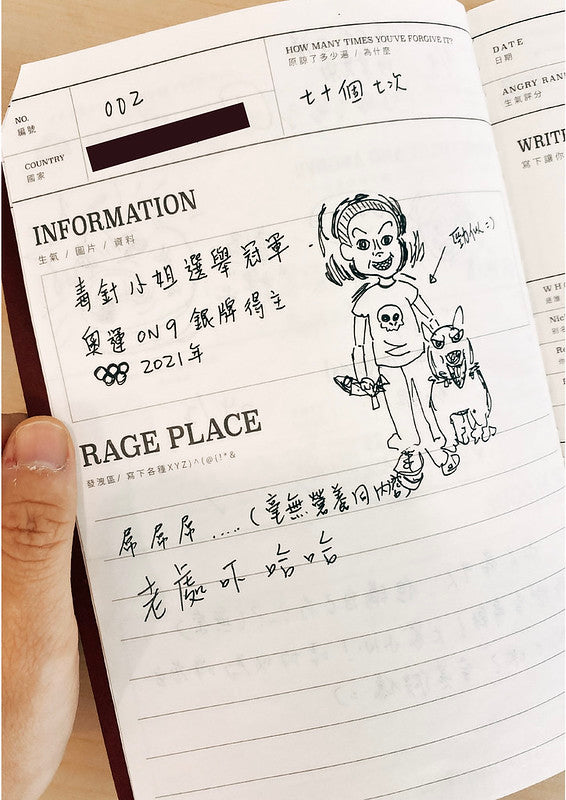 NO.
編號
002
COUNTRY
國家
HOW MANY TIMES YOU'VE FORGIVE IT?
原諒了多少遍 / 為什麼
七十個七次
INFORMATION
生氣 / 圖片 / 資料
毒針小姐選舉冠軍
奧運 ON9 銀牌得主
2021年
勁似 :)
RAGE PLACE
發洩區/ 寫下各種XYZ)^(@(!*&
屌屌屌.....(毫無營養日內容)
老處吓哈哈
DATE
日期
ANGRY RAN
生氣評分
WRITE
寫下讓你